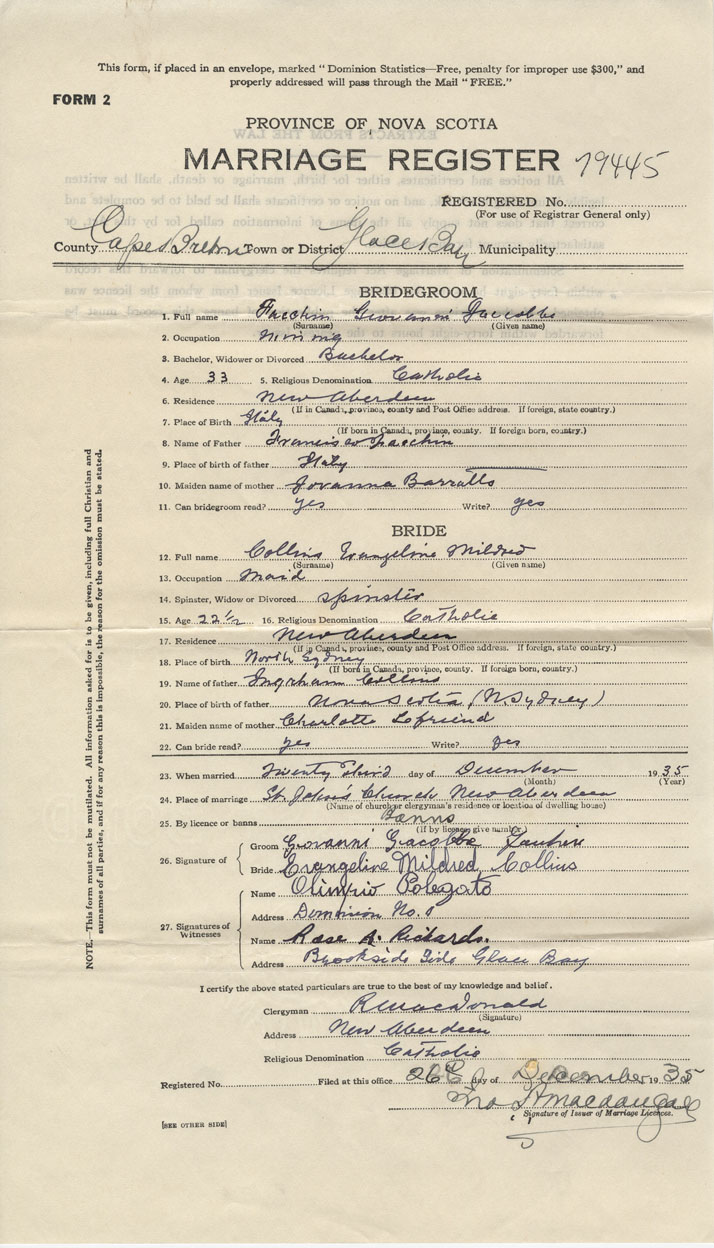 This form, if placed in an envelope, marked " Dominion Statistics—Free, penalty for improper use $300," and
properly addressed will pass through the Mail " FREE."
FORM 2
PROVINCE OF NOVA SCOTIA
MARRIAGE REGISTER 79445
REGISTERED No.
(For use of Registrar General only)
County Cape Breton Town or District Glace Bay Municipality
BRIDEGROOM
1. Full name Facchin Giovanni Jaccobbe
(Surname) (Given name)
2. Occupation mining
3. Bachelor, Widower or Divorced Bachelor
4. Age 33 5. Religious Denomination Catholic
6. Residence New Aberdeen
(If in Canada, province, county and Post Office address. If foreign, state country.)
7. Place of Birth Italy
(If born in Canada, province, county. If foreign born, country.)
8. Name of Father Francisco Facchin
9. Place of birth of father Italy
10. Maiden name of mother Jovanna Barratto
11. Can bridegroom read? yes Write? yes
BRIDE
12. Full name Collins Evangeline Mildred
(Surname) (Given name)
13. Occupation maid
14. Spinster, Widow or Divorced spinster
15. Age 22½ 16. Religious Denomination Catholic
17. Residence New Aberdeen
(If in Canada, province, county and Post Office address. If foreign, state country.)
18. Place of birth North Sydney
(If born in Canada, province, county. If foreign born, country.)
19. Name of father Ingraham Collins
20. Place of birth of father Nova Scotia (N. Sydney)
21. Maiden name of mother Charlotte Lofriend
22. Can bride read? yes Write? yes
23. When married Twenty Third day of December 1935
(Month) (Year)
24. Place of marriage St. John's Church New Aberdeen
(Name of church or clergyman's residence or location of dwelling house)
25. By licence or banns Banns
(If by licence give number)
26. Signature of
Groom Giovanni Giacobbe
Bride Evangeline Mildred Collins
27. Signatures of Witnesses
Name Olimpio Polegato
Address Dominion No.
Name Rose A. Rickards.
Address Brookside Glace Bay
I certify the above stated particulars are true to the best of my knowledge and belief.
Clergyman R MacDonald
(Signature)
Address New Aberdeen
Religious Denomination Catholic
Registered No. Filed at this office 26 day of December 1935
Signature of Issuer of Marriage Licences.
[SEE OTHER SIDE]
NOTE.—This form must not be mutilated. All information asked for is to be given, including full Christian and
surnames of all parties, and if for any reason this is impossible, the reason for the omission must be stated.